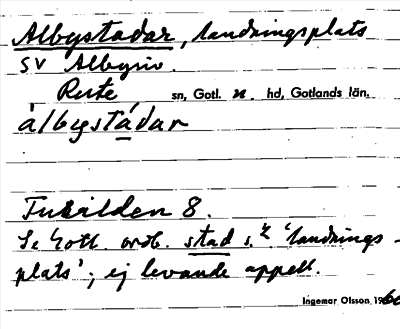 Albystadar, landningsplats
SV Albyviv.
Rute sn, Gotl. n. hd, Gotlands län.
álbystádar
8.
Se Gotl. ordb. stad s.2 'landnings-
plats'; ej levande appell.
Ingemar Olsson, 1960